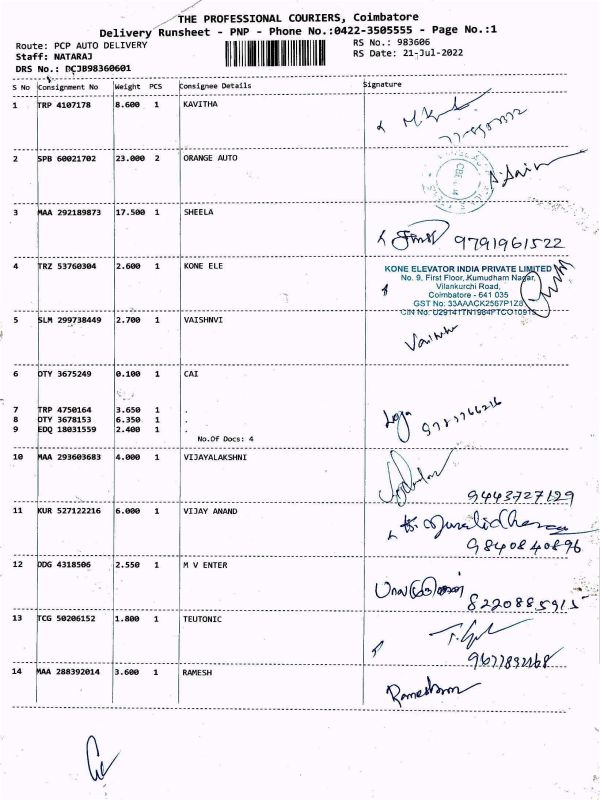 THE PROFESSIONAL COURIERS, Coimbatore
Delivery Runsheet - PNP - Phone No.:0422-3505555 - Page No.:1
Route: PCP AUTO DELIVERY
RS No.: 983606
Staff: NATARAJ
RS Date: 21-Jul-2022
DRS No.: DCJB98360601
S No Consignment No Weight PCS Consignee Details Signature
1 TRP 4107178 8.600 1 KAVITHA
2 SPB 60021702 23.000 2 ORANGE AUTO
3 MAA 292189873 17.500 1 SHEELA
9791961522
4 TRZ 53760304 2.600 1 KONE ELE
KONE ELEVATOR INDIA PRIVATE LIMITED
No. 9, First Floor, Kumudham Nagar,
Vilankurchi Road,
Coimbatore - 641 035
GST No: 33AAACK2567P1Z8
5 SLM 299738449 2.700 1 VAISHNVI
6 DTY 3675249 0.100 1 CAI
7 TRP 4750164 3.650 1 .
8 DTY 3678153 6.350 1 .
9 EDQ 18031559 2.400 1 .
No.Of Docs: 4
10 MAA 293603683 4.000 1 VIJAYALAKSHNI
9443727129
11 KUR 527122216 6.000 1 VIJAY ANAND
9840840896
12 DDG 4318506 2.550 1 M V ENTER
8220885915
13 TCG 50206152 1.800 1 TEUTONIC
14 MAA 288392014 3.600 1 RAMESH